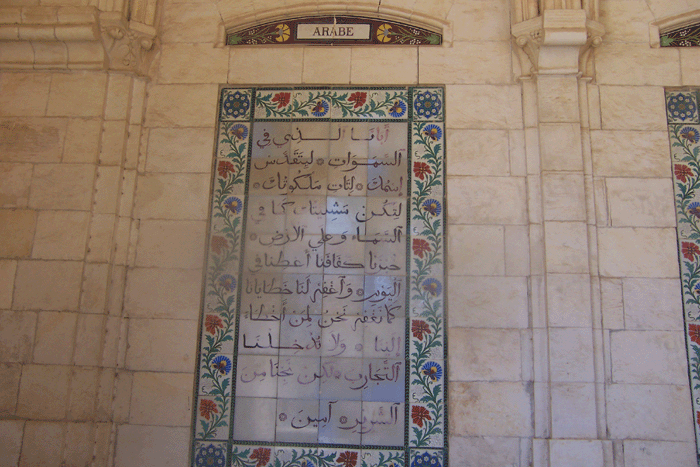 ARABE
أبانا الذي في
السموات ✽ ليتقدس
إسمك ✽ لتات ملكوتك ✽
لتكن مشيتك كما في
السماء وعلي الارض ✽
خبزنا كفافنا أعطنا في
اليوم ✽ وآغفر لنا خطايانا
كما نغفر نحن لمن أخطا
إلينا ✽ ولا تدخلنا
التجارب ✽ لكن نجنا من
الشرير ✽ آمين ✽